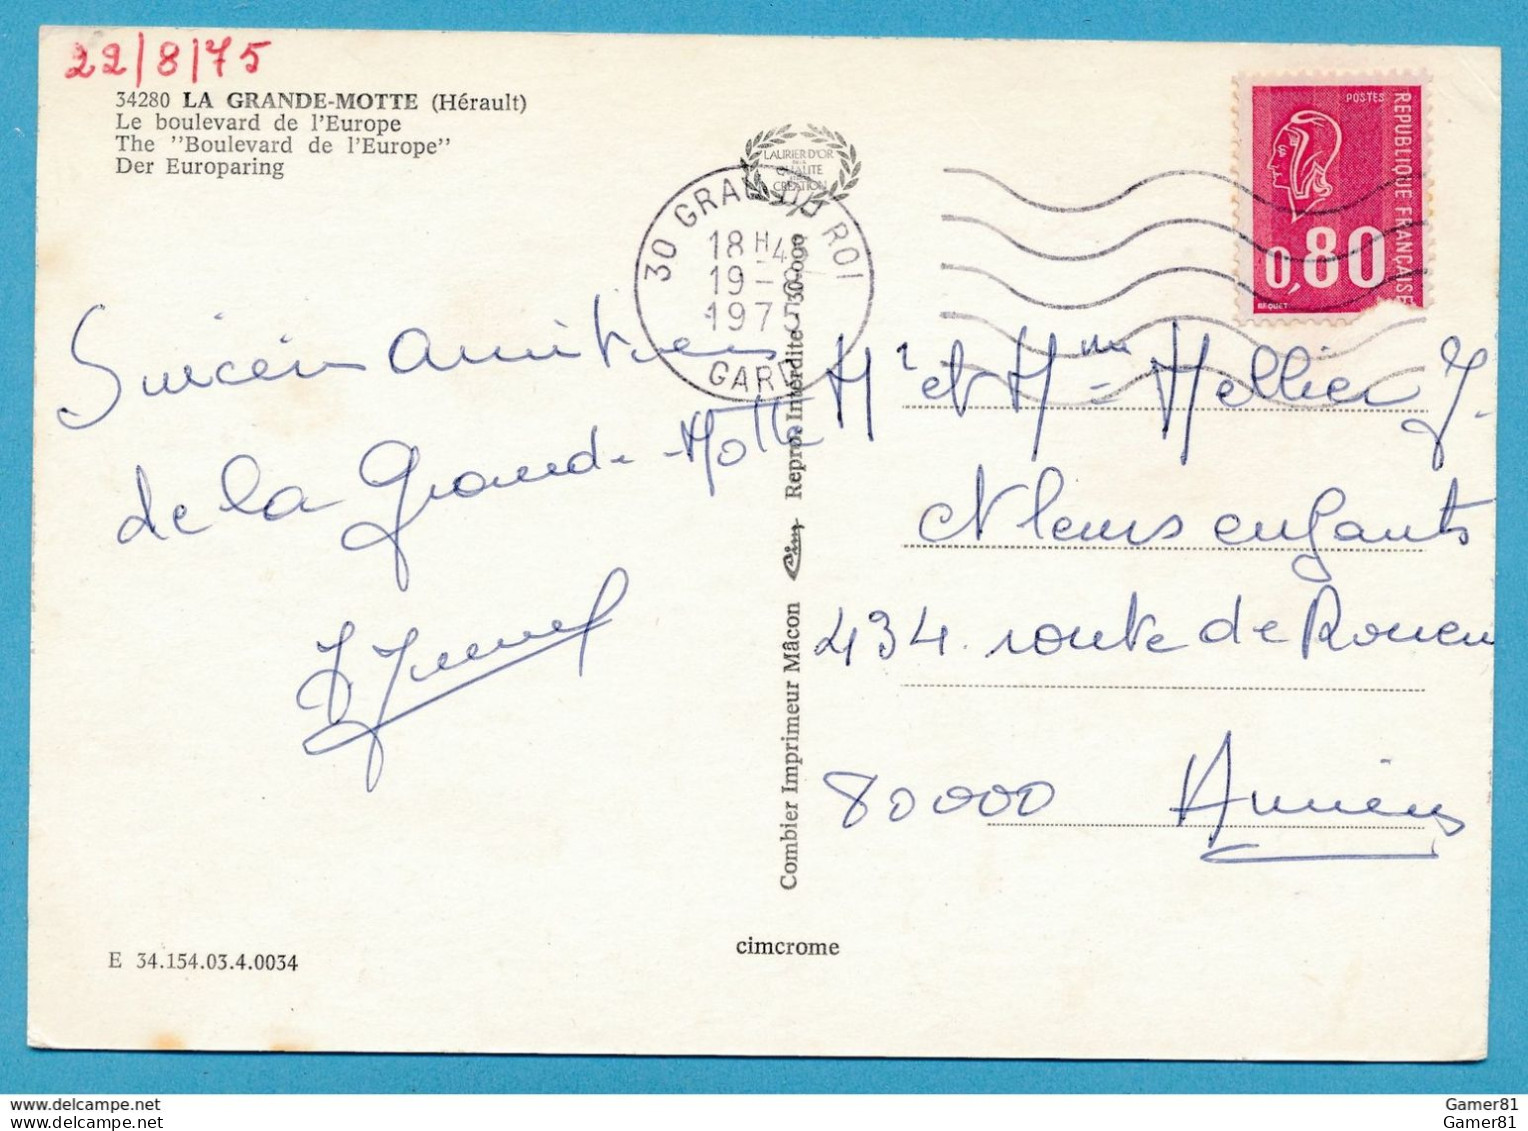 22/8/75
34280 LA GRANDE-MOTTE (Hérault)
Le boulevard de l'Europe
The "Boulevard de l'Europe"
Der Europaring
LAURIER D'OR
QUALITE
CREATION
30 GRAU DU ROI
18 H
19 -
197
GARD
POSTES
REPUBLIQUE FRANÇAISE
0,80
BEQUET
Sincères amitiés
de la Grande-Motte
Mr et Mme Hellier J.
et leurs enfants
434 route de Rouen
80000 Amiens
Combier Imprimeur Mâcon Cim Repro. Interdite
cimcrome
E 34.154.03.4.0034
www.delcampe.net
Gamer81
Gamer81